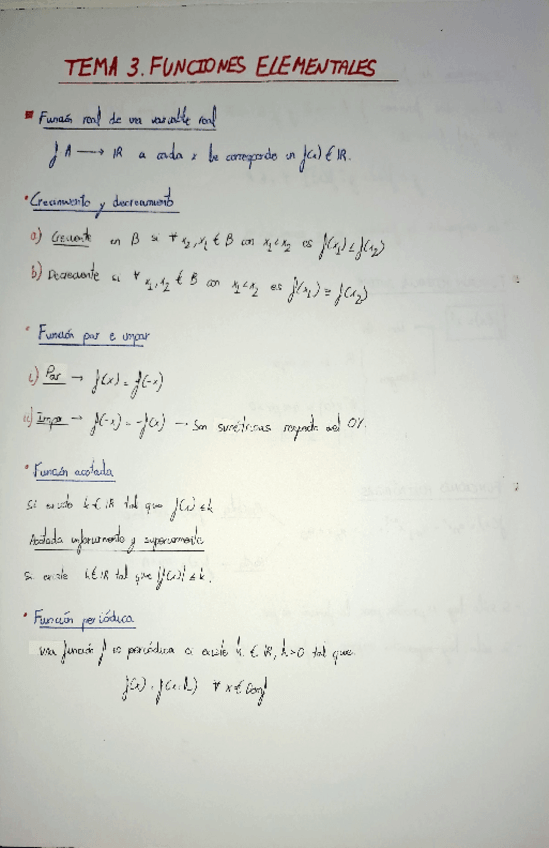 TEMA 3. FUNCIONES ELEMENTALES
Función real de una variable real
f A → IR a cada x le corresponde un f(x) ∈ IR.
Crecimiento y decrecimiento
a) Creciente en B si ∀ x₂, x₁ ∈ B con x₁ < x₂ es f(x₁) ≤ f(x₂)
b) Decreciente si ∀ x₁, x₂ ∈ B con x₁ < x₂ es f(x₁) ≥ f(x₂)
Función par e impar
i) Par → f(x) = f(-x)
ii) Impar → f(-x) = -f(x) → Son simétricas respecto del OY.
Función acotada
Si existe k ∈ IR tal que f(x) ≤ k
Acotada inferiormente y superiormente
Si existe k ∈ IR tal que |f(x)| ≤ k.
Función periódica
Una función f es periódica si existe h ∈ IR, h > 0 tal que
f(x) = f(x+h) ∀ x ∈ Dom f